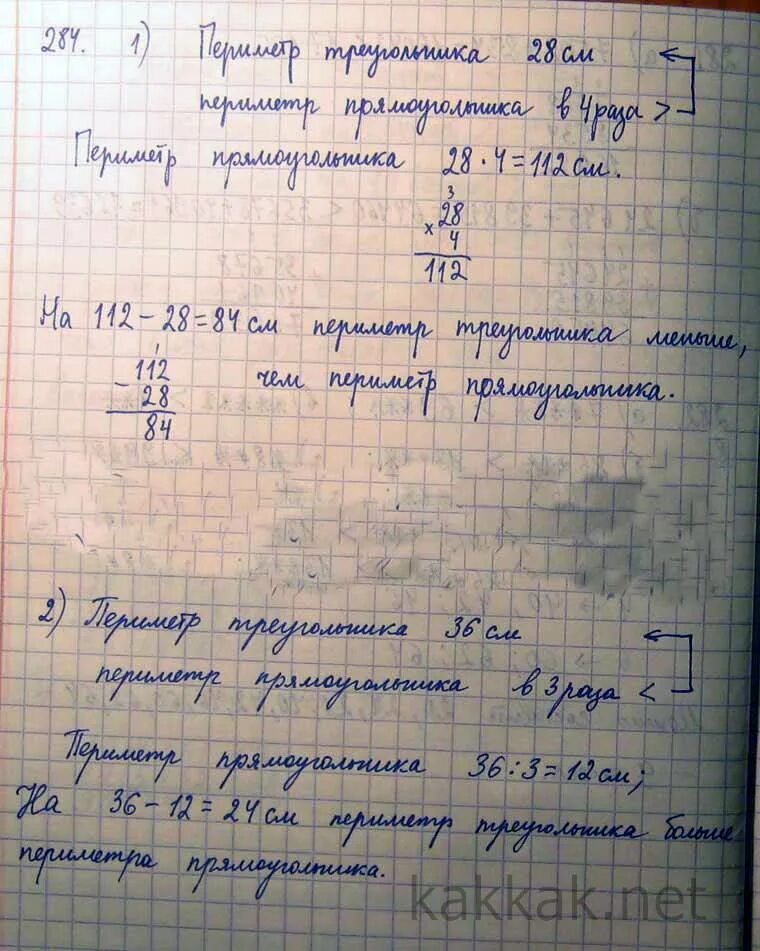 284. 1) Периметр треугольника 28 см
периметр прямоугольника в 4 раза >
Периметр прямоугольника 28 · 4 = 112 см.
3
28
× 4
112
На 112 − 28 = 84 см периметр треугольника меньше,
чем периметр прямоугольника.
1
112
− 28
84
2) Периметр треугольника 36 см
периметр прямоугольника в 3 раза <
Периметр прямоугольника 36 : 3 = 12 см;
На 36 − 12 = 24 см периметр треугольника больше
периметра прямоугольника.
kakkak.net